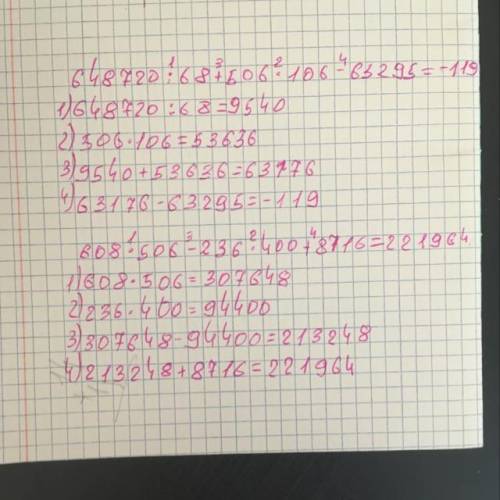 648720:68+506·106-63295=-119
1)648720:68=9540
2)306·106=53636
3)9540+53636=63176
4)63176-63295=-119
608·506-236·400+8716=221964
1)608·506=307648
2)236·400=94400
3)307648-94400=213248
4)213248+8716=221964